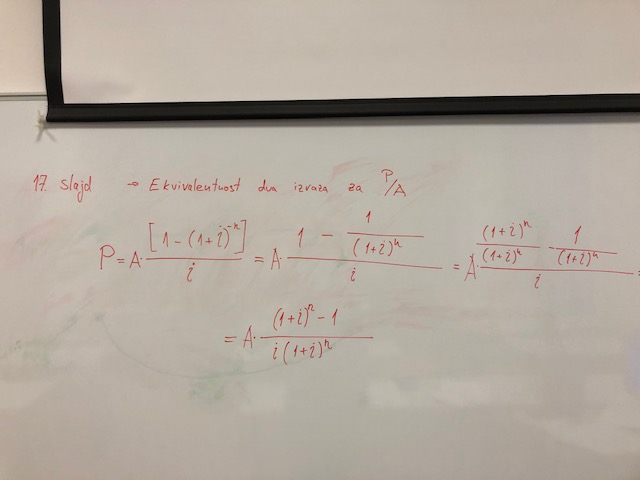 17. slajd → Ekvivalentnost dva izraza za P/A
P = A · [1 - (1+i)^-n] / i = A · (1 - 1/(1+i)^n) / i = A · ((1+i)^n/(1+i)^n - 1/(1+i)^n) / i =
= A · ((1+i)^n - 1) / (i(1+i)^n)